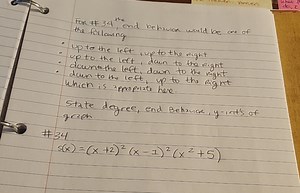 For #34, end behavior would be one of
the following
• up to the left, up to the right
• up to the left, down to the right
• down to the left, down to the right
• down to the left, up to the right
Which is appropriate here
State degree, end behavior, y-ints of
graph
#34
s(x) = (x+2)² (x-1)² (x²+5)